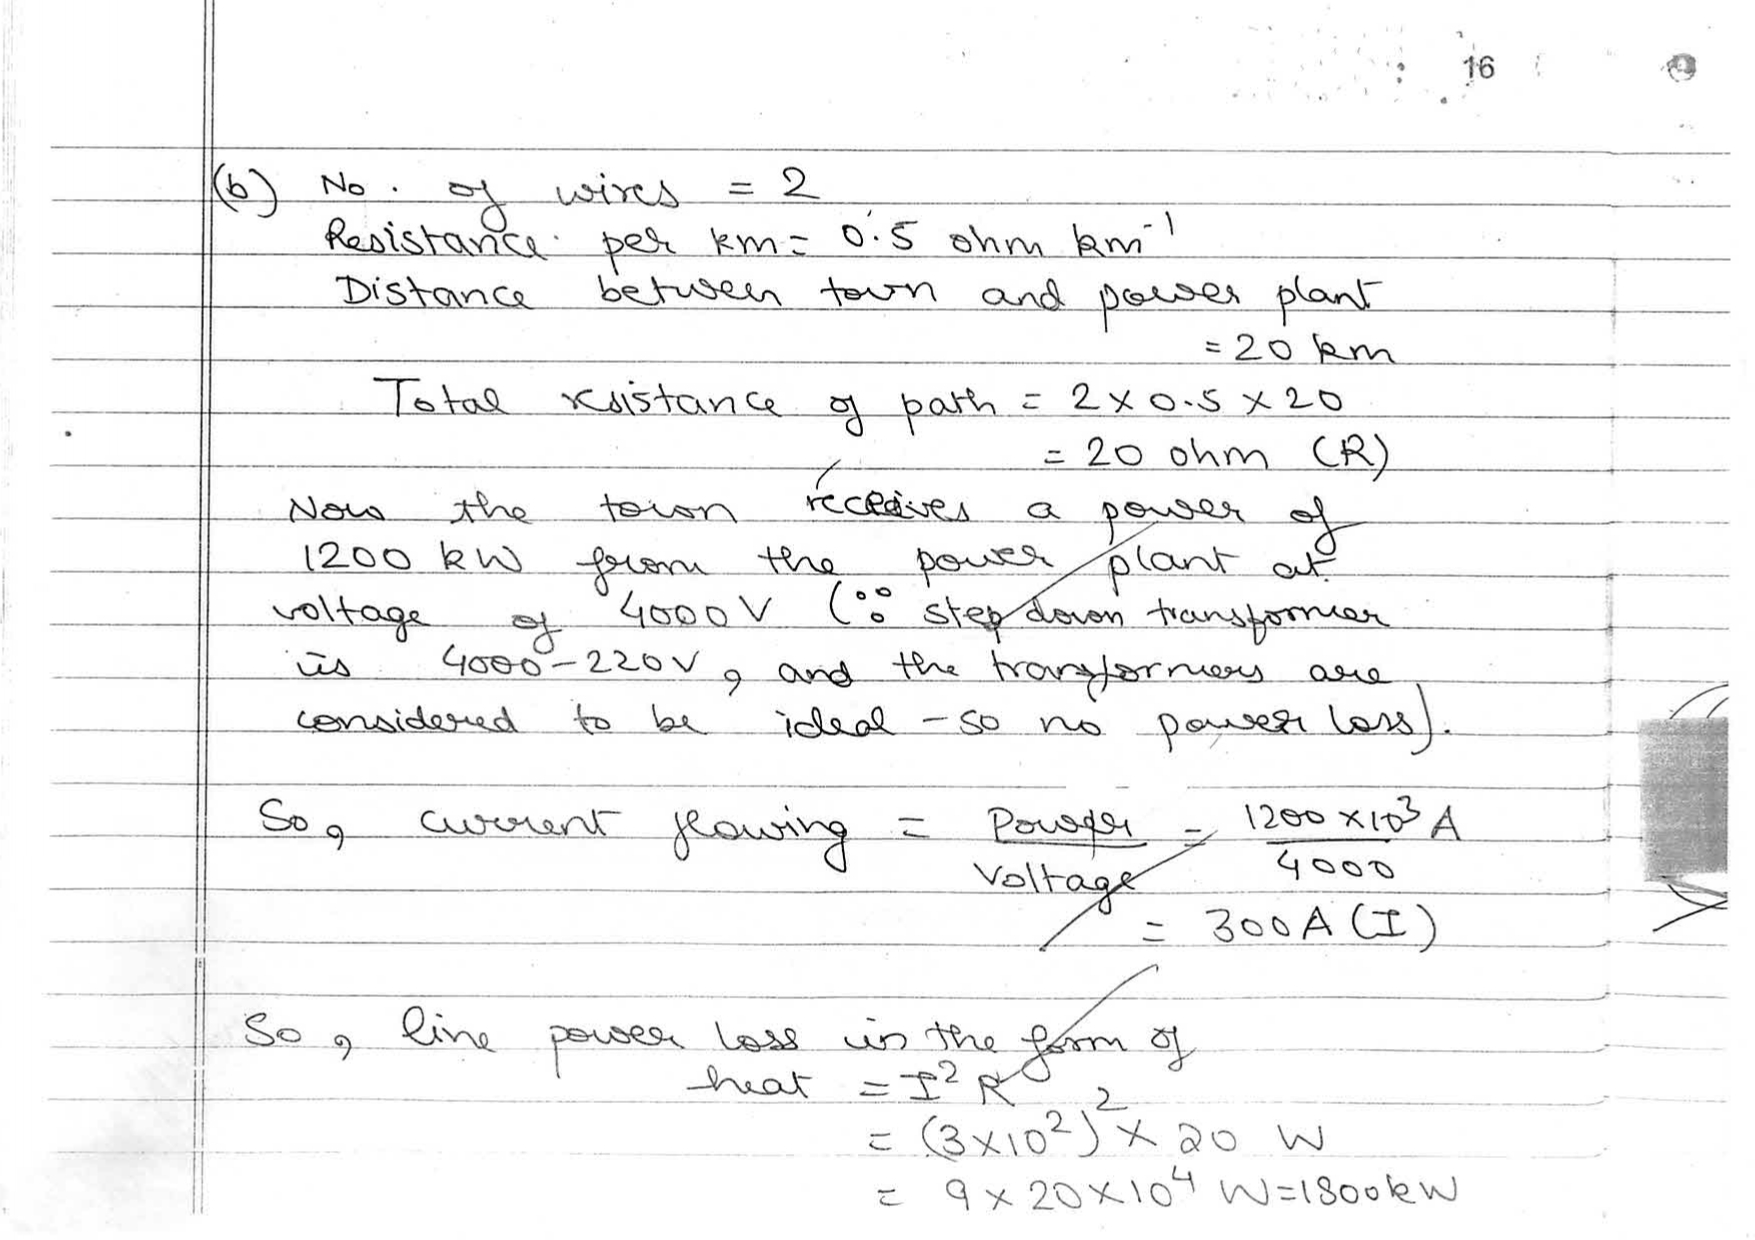 16
(b) No. of wires = 2
Resistance per km = 0.5 ohm km⁻¹
Distance between town and power plant
= 20 km
Total resistance of path = 2 × 0.5 × 20
= 20 ohm (R)
Now the town receives a power of
1200 kW from the power plant at
voltage of 4000 V (∵ step down transformer
is 4000-220V, and the transformers are
considered to be ideal - so no power loss).
So, current flowing = Power / Voltage = 1200 × 10³ / 4000 A
= 300 A (I)
So, line power loss in the form of
heat = I² R
= (3×10²)² × 20 W
= 9 × 20 × 10⁴ W = 1800 kW